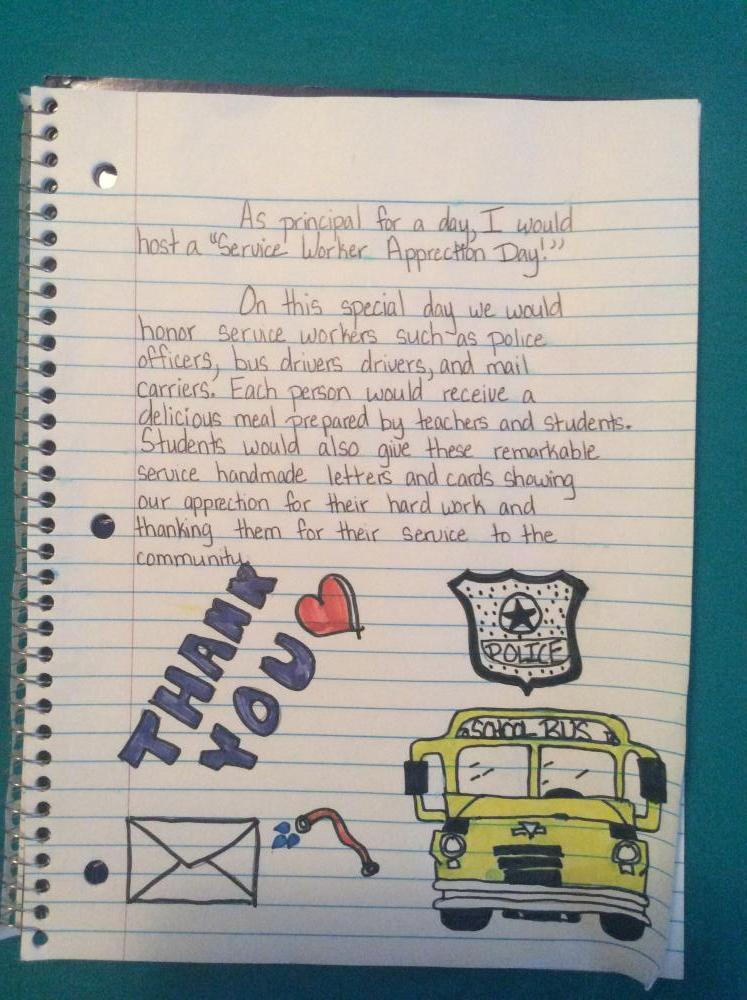 As principal for a day, I would
host a "Service Worker Apprection Day!"
On this special day we would
honor service workers such as police
officers, bus drivers drivers, and mail
carriers. Each person would receive a
delicious meal prepared by teachers and students.
Students would also give these remarkable
service handmade letters and cards showing
our apprection for their hard work and
thanking them for their service to the
community.
THANK
YOU
POLICE
SCHOOL BUS